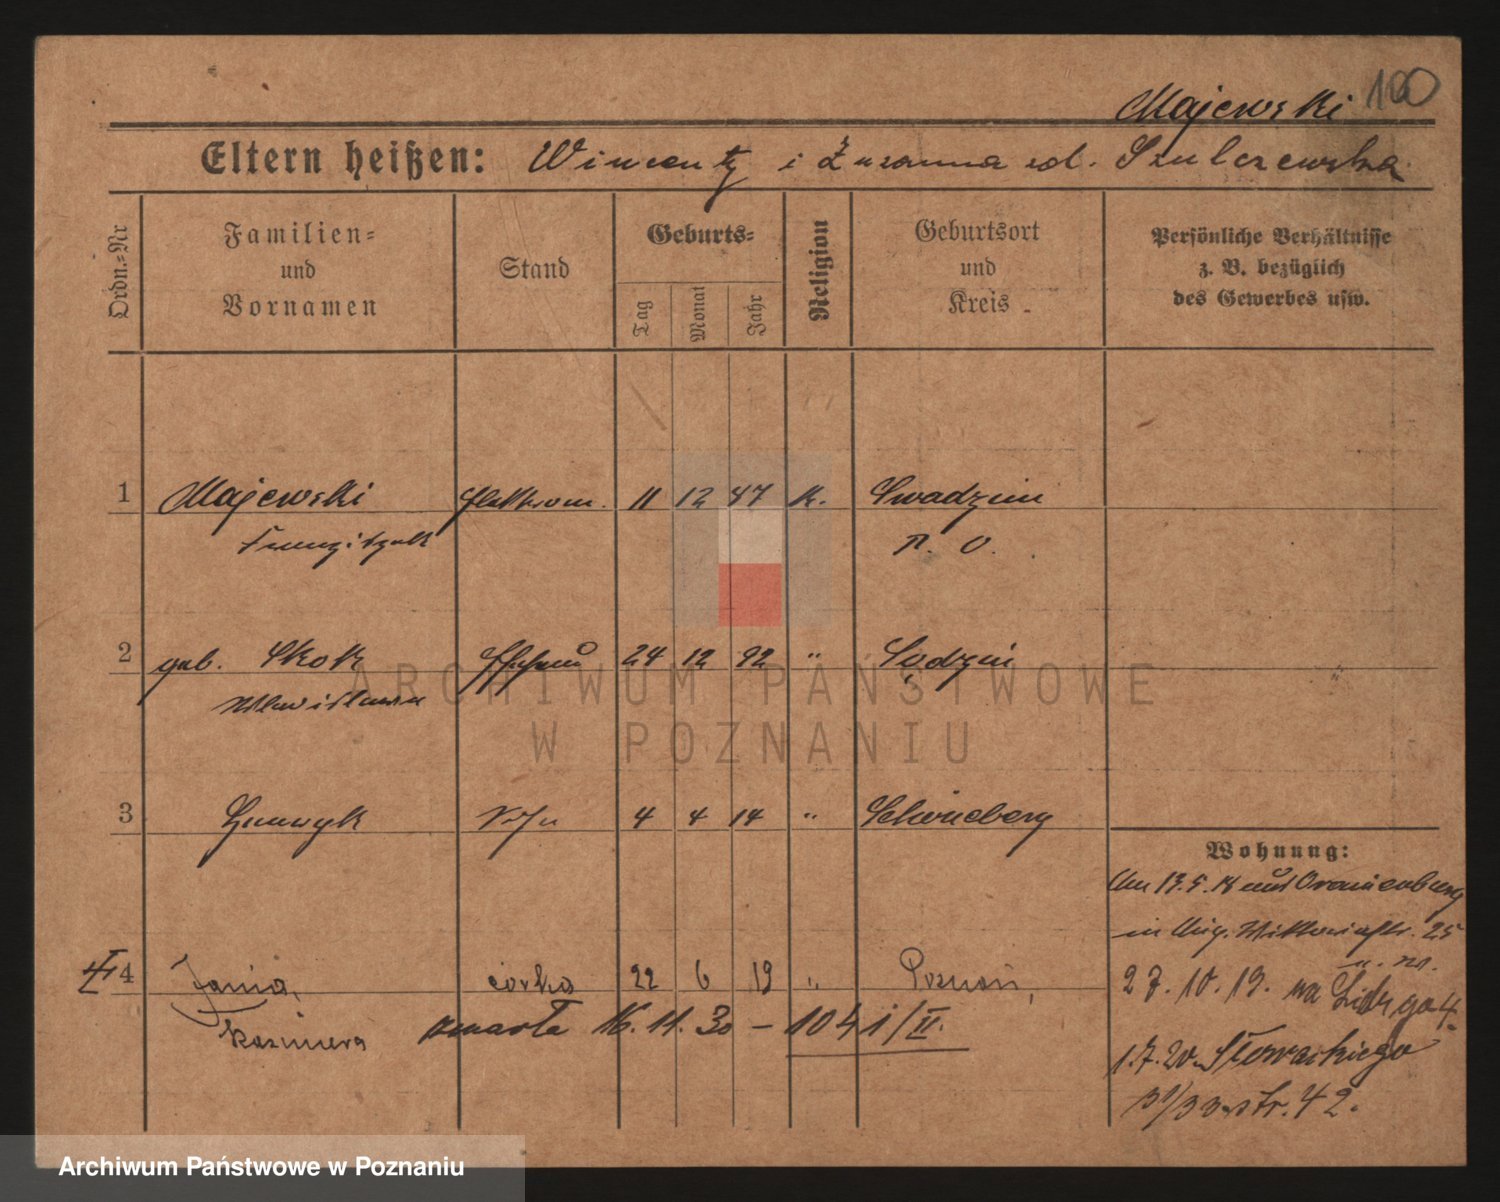 100
Majewski
Eltern heißen: Wincenty i Zuzanna zd. Szulczewska
Ordn.-Nr
Familien-
und
Vornamen
Stand
Geburts-
Tag
Monat
Jahr
Religion
Geburtsort
und
Kreis
Persönliche Verhältnisse
z. B. bezüglich
des Gewerbes usw.
1 Majewski 11 12 87 k. Swadzim
Franziszek P. O.
2 geb. Skok Ehefrau 24 12 92 "
Wladislawa
3 Henryk Sohn 4 4 14 " Schöneberg
Wohnung:
Am 13.5.18 aus Oranienburg
in Aug. Viktoriastr. 25
4 Janina, córka 22 6 19 " Poznań,
Kazimiera
27.10.19. na
zmarła 16.11.30 – 1041/II.
1.7.20. Słowackiego
31/33 str. 42.
ARCHIWUM PAŃSTWOWE
W POZNANIU
Archiwum Państwowe w Poznaniu